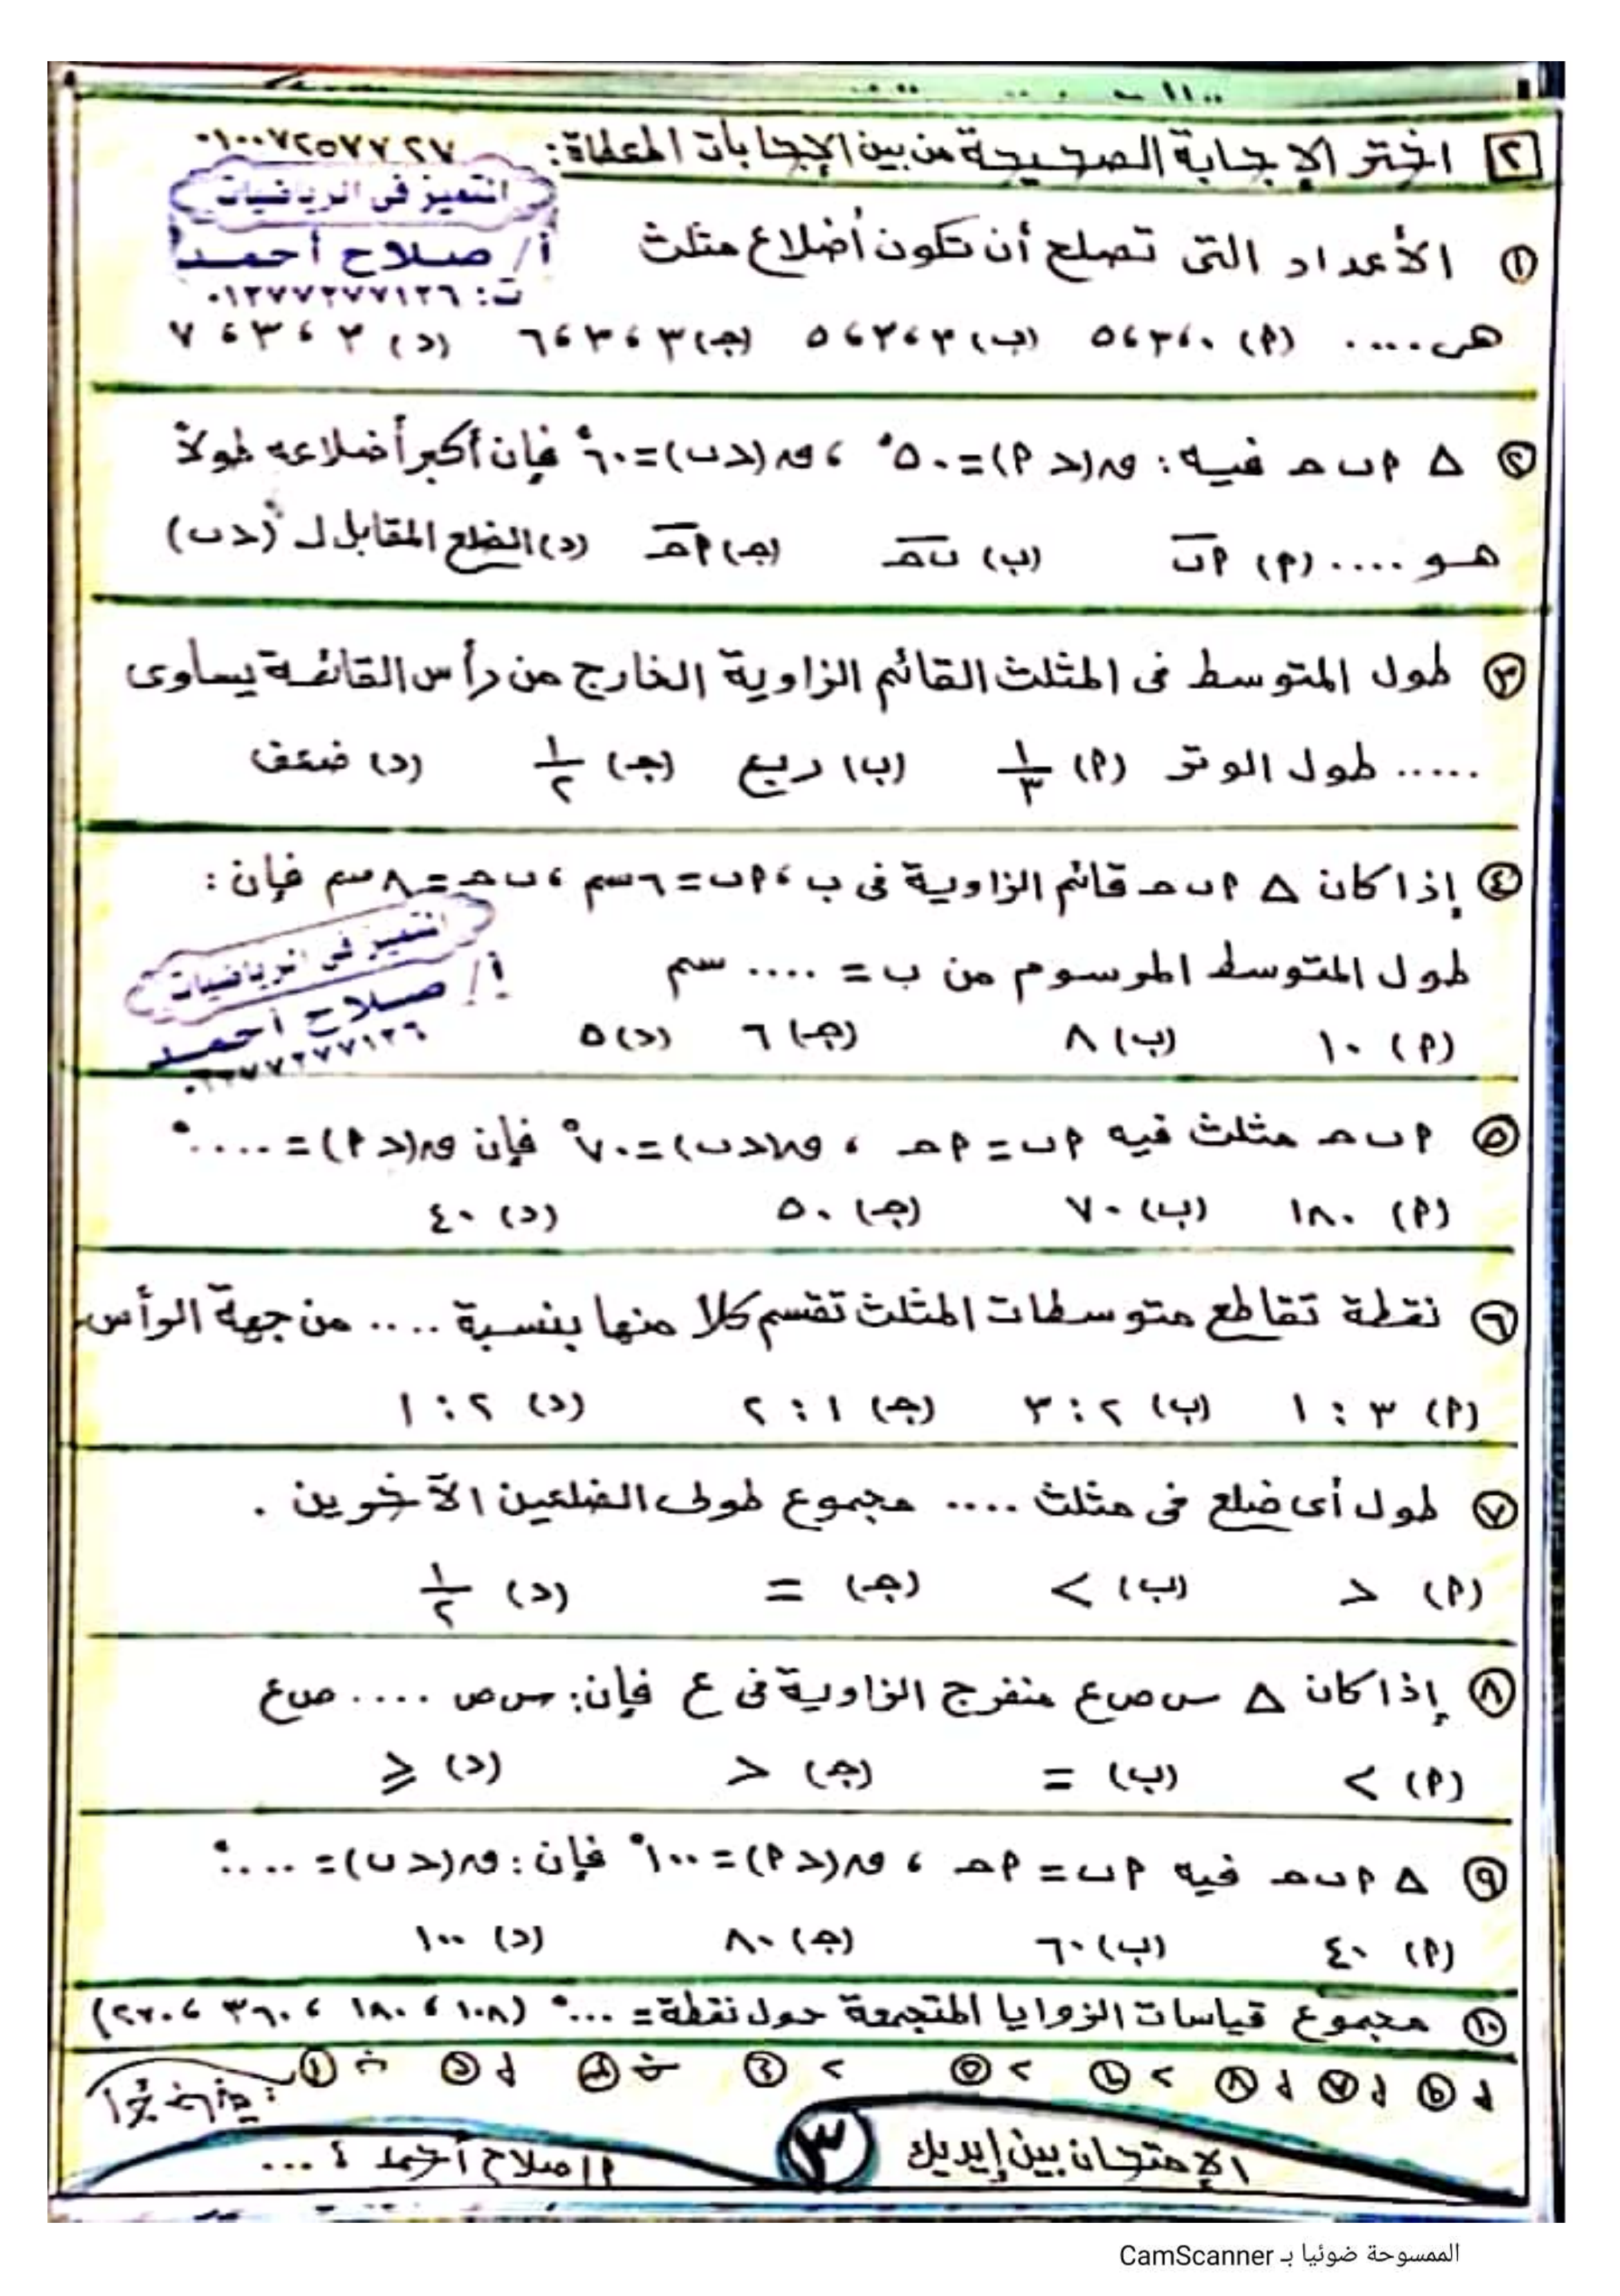 ٠١٠٠٧٢٥٧٧٢٧
٢ اختر الإجابة الصحيحة من بين الإجابات المعطاة:
المتميز فى الرياضيات
أ/ صلاح أحمد
ت: ٠١٢٧٧٢٧٧١٢٦
١ الأعداد التى تصلح أن تكون أضلاع مثلث
هى .... (٢) ٠، ٣، ٥ (ب) ٣، ٢، ٥ (جـ) ٣، ٣، ٦ (د) ٣، ٧
٢ △ ٢ ب حـ فيه: ق(د ٢) = ٥٠°، ق(د ب) = ٦٠° فإن أكبر أضلاعه طولاً
هو .... (٢) ٢ب (ب) ب حـ (جـ) ٢ حـ (د) الضلع المقابل لـ (د ب)
٣ طول المتوسط فى المثلث القائم الزاوية الخارج من رأس القائمة يساوى
..... طول الوتر (٢) ١/٣ (ب) ربع (جـ) ١/٢ (د) ضعف
٤ إذا كان △ ٢ ب حـ قائم الزاوية فى ب، ٢ ب = ٦ سم، ب حـ = ٨ سم فإن:
طول المتوسط المرسوم من ب = .... سم
المتميز فى الرياضيات
أ/ صلاح أحمد
(٢) ١٠ (ب) ٨ (جـ) ٦ (د) ٥
٥ ٢ ب حـ مثلث فيه ٢ ب = ٢ حـ، ق(د ب) = ٧٠° فإن ق(د ٢) = ....°
(٢) ١٨٠ (ب) ٧٠ (جـ) ٥٠ (د) ٤٠
٦ نقطة تقاطع متوسطات المثلث تقسم كلا منها بنسبة .... من جهة الرأس
(٢) ٣ : ١ (ب) ٢ : ٣ (جـ) ١ : ٢ (د) ٢ : ١
٧ طول أى ضلع فى مثلث .... مجموع طولى الضلعين الآخرين .
(٢) > (ب) < (جـ) = (د) ١/٢
٨ إذا كان △ س ص ع منفرج الزاوية فى ع فإن: س ص .... ص ع
(٢) < (ب) = (جـ) > (د) ⩾
٩ △ ٢ ب حـ فيه ٢ ب = ٢ حـ، ق(د ٢) = ١٠٠° فإن: ق(د ب) = ....°
(٢) ٤٠ (ب) ٦٠ (جـ) ٨٠ (د) ١٠٠
١٠ مجموع قياسات الزوايا المتجمعة حول نقطة = ...° (١٠٨، ١٨٠، ٣٦٠، ٢٧٠)
الإمتحان بين إيديك
٣
أ/ صلاح أحمد
الممسوحة ضوئيا بـ CamScanner